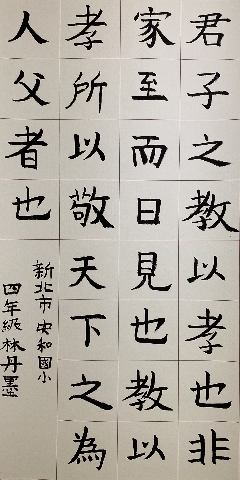 君子之教以孝也非
家至而日見也教以
孝所以敬天下之為
人父者也
新北市安和國小
四年級林丹墨